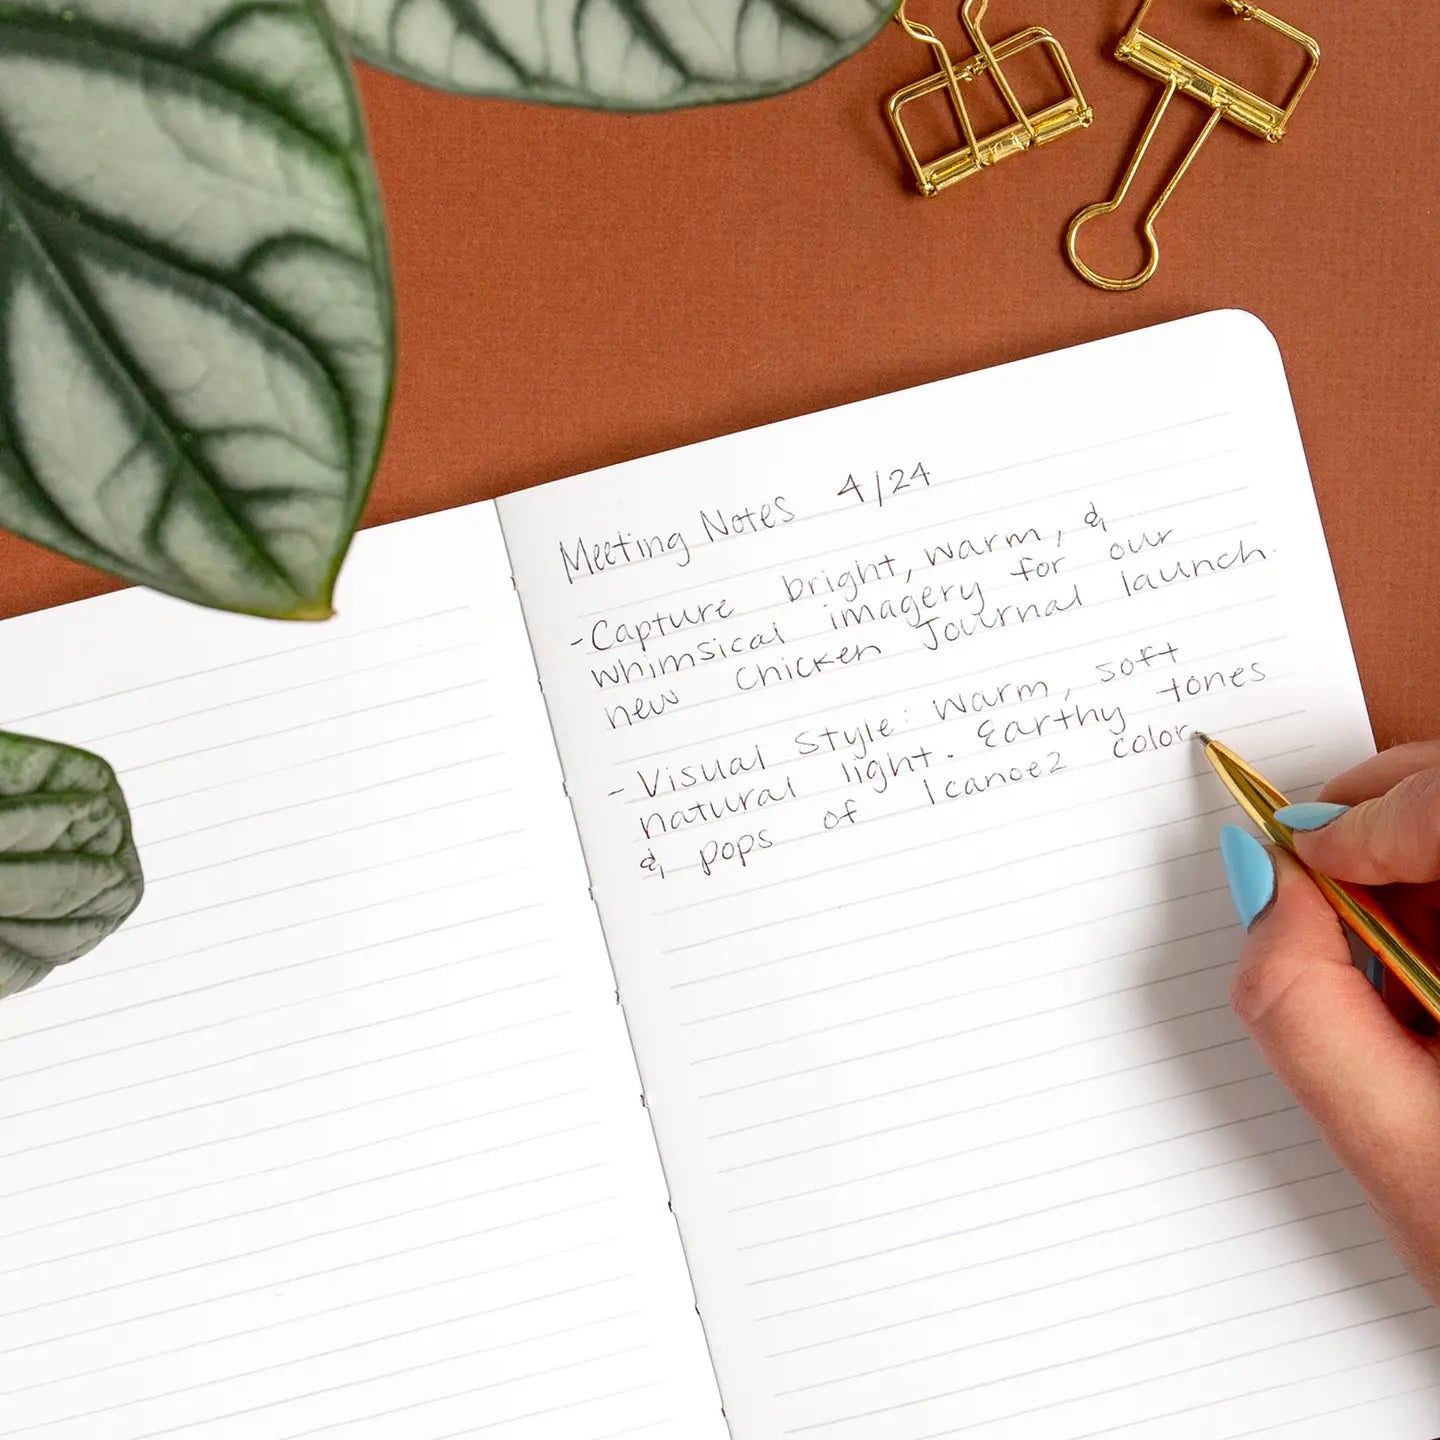 Meeting Notes 4/24
- Capture bright, warm, &
whimsical imagery for our
new Chicken Journal launch.
- Visual Style: warm, soft
natural light. Earthy tones
& pops of 1canoe2 color